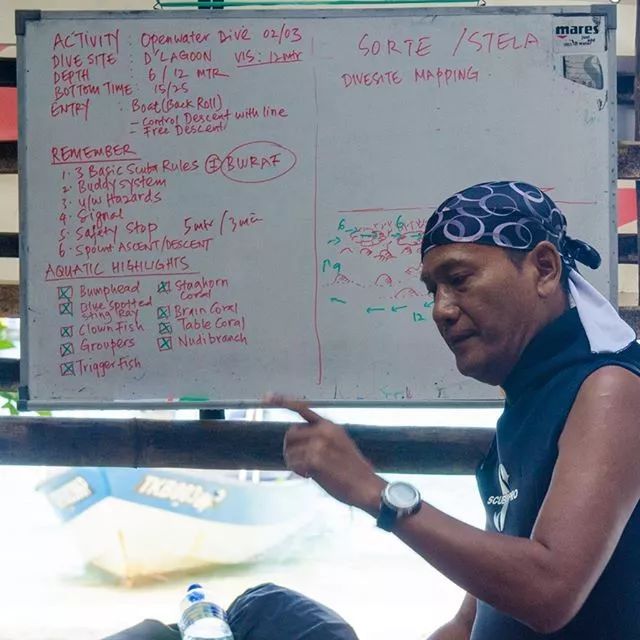 ACTIVITY : Openwater Dive 02/03
DIVE SITE : D'LAGOON VIS: 12mtr
DEPTH : 6/12 MTR
BOTTOM TIME : 15/25
ENTRY : Boat (Back Roll)
- Control Descent with line
- Free Descent
REMEMBER
1. 3 Basic Scuba Rules ± BWRAF
2. Buddy system
3. U/W Hazards
4. Signal
5. Safety Stop 5mtr / 3min
6. 5point ASCENT/DESCENT
AQUATIC HIGHLIGHTS
Bumphead
Blue Spotted
Sting Ray
Clown Fish
Groupers
Trigger fish
Staghorn
Coral
Brain Coral
Table Coral
Nudibranch
SORTE / STELA
DIVESITE MAPPING
6
6
12
mares